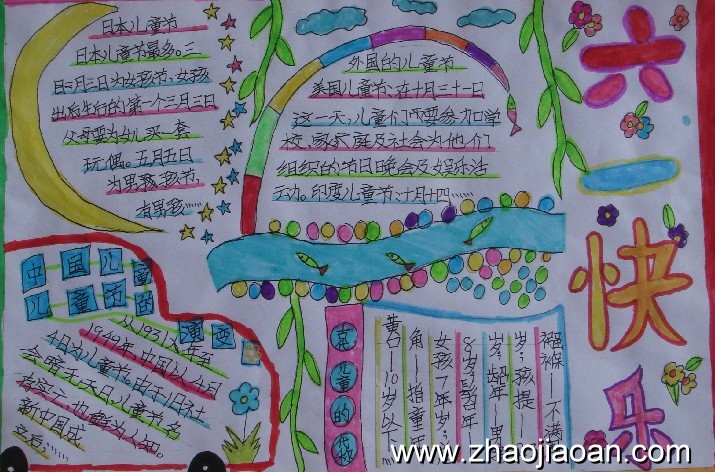 日本儿童节
日本儿童节最多。三
月三日为女孩节,女孩
出后生行的第一个三月三日
父母要为女儿买一套
玩偶。五月五日
为男孩节,
有男孩……
外国的儿童节
美国儿童节:在十月三十一日
这一天,儿童们不要参加
校、家庭及社会为他们
组织的节日晚会及娱乐活
动。印度儿童节:十月十四……
六一快乐
中国儿童
儿童节的
演变
从1931年至
1949年,中国以4月
4日为儿童节。由于旧社
儿童节名
也鲜为人知。
新中国成
立后……
古儿童的代称
襁褓——不满
岁;孩提——
岁;龆年——男
8岁;髫年
女孩7年岁;
角——指童
黄口——10岁以下
www.zhaojiaoan.com